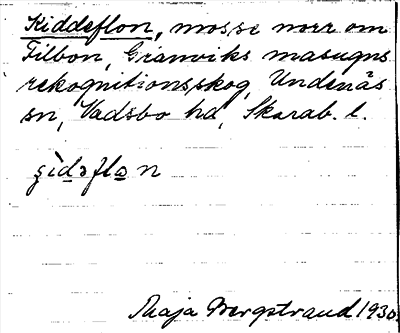 Kiddeflon, mosse norr om
Tilbon, Granviks masugns
rekognitionsskog, Undenäs
sn, Vadsbo hd, Skarab. l.
Maja Bergstrand 1930.